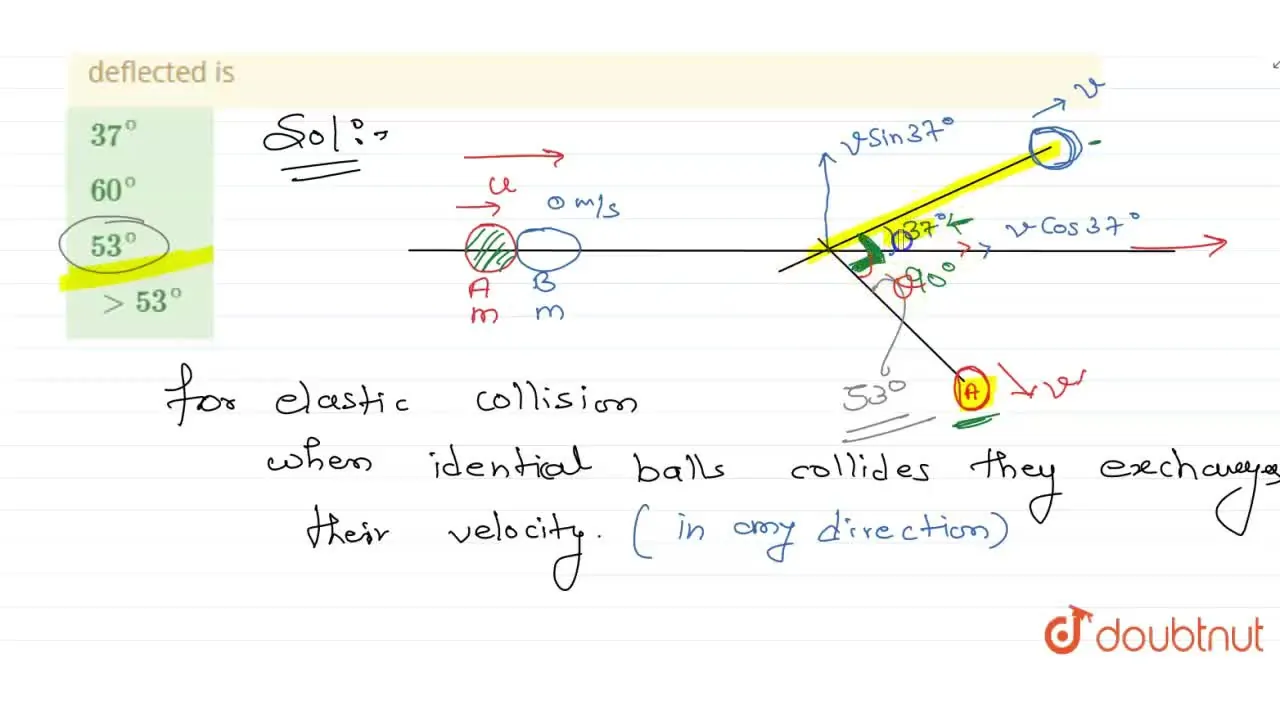 deflected is
37°
60°
53°
> 53°
Sol:-
u
0 m/s
A
B
m
m
v sin 37°
v
37°
v cos 37°
90°
53°
A
v
for elastic collision
when identical balls collides they exchanges
their velocity. (in any direction)
doubtnut